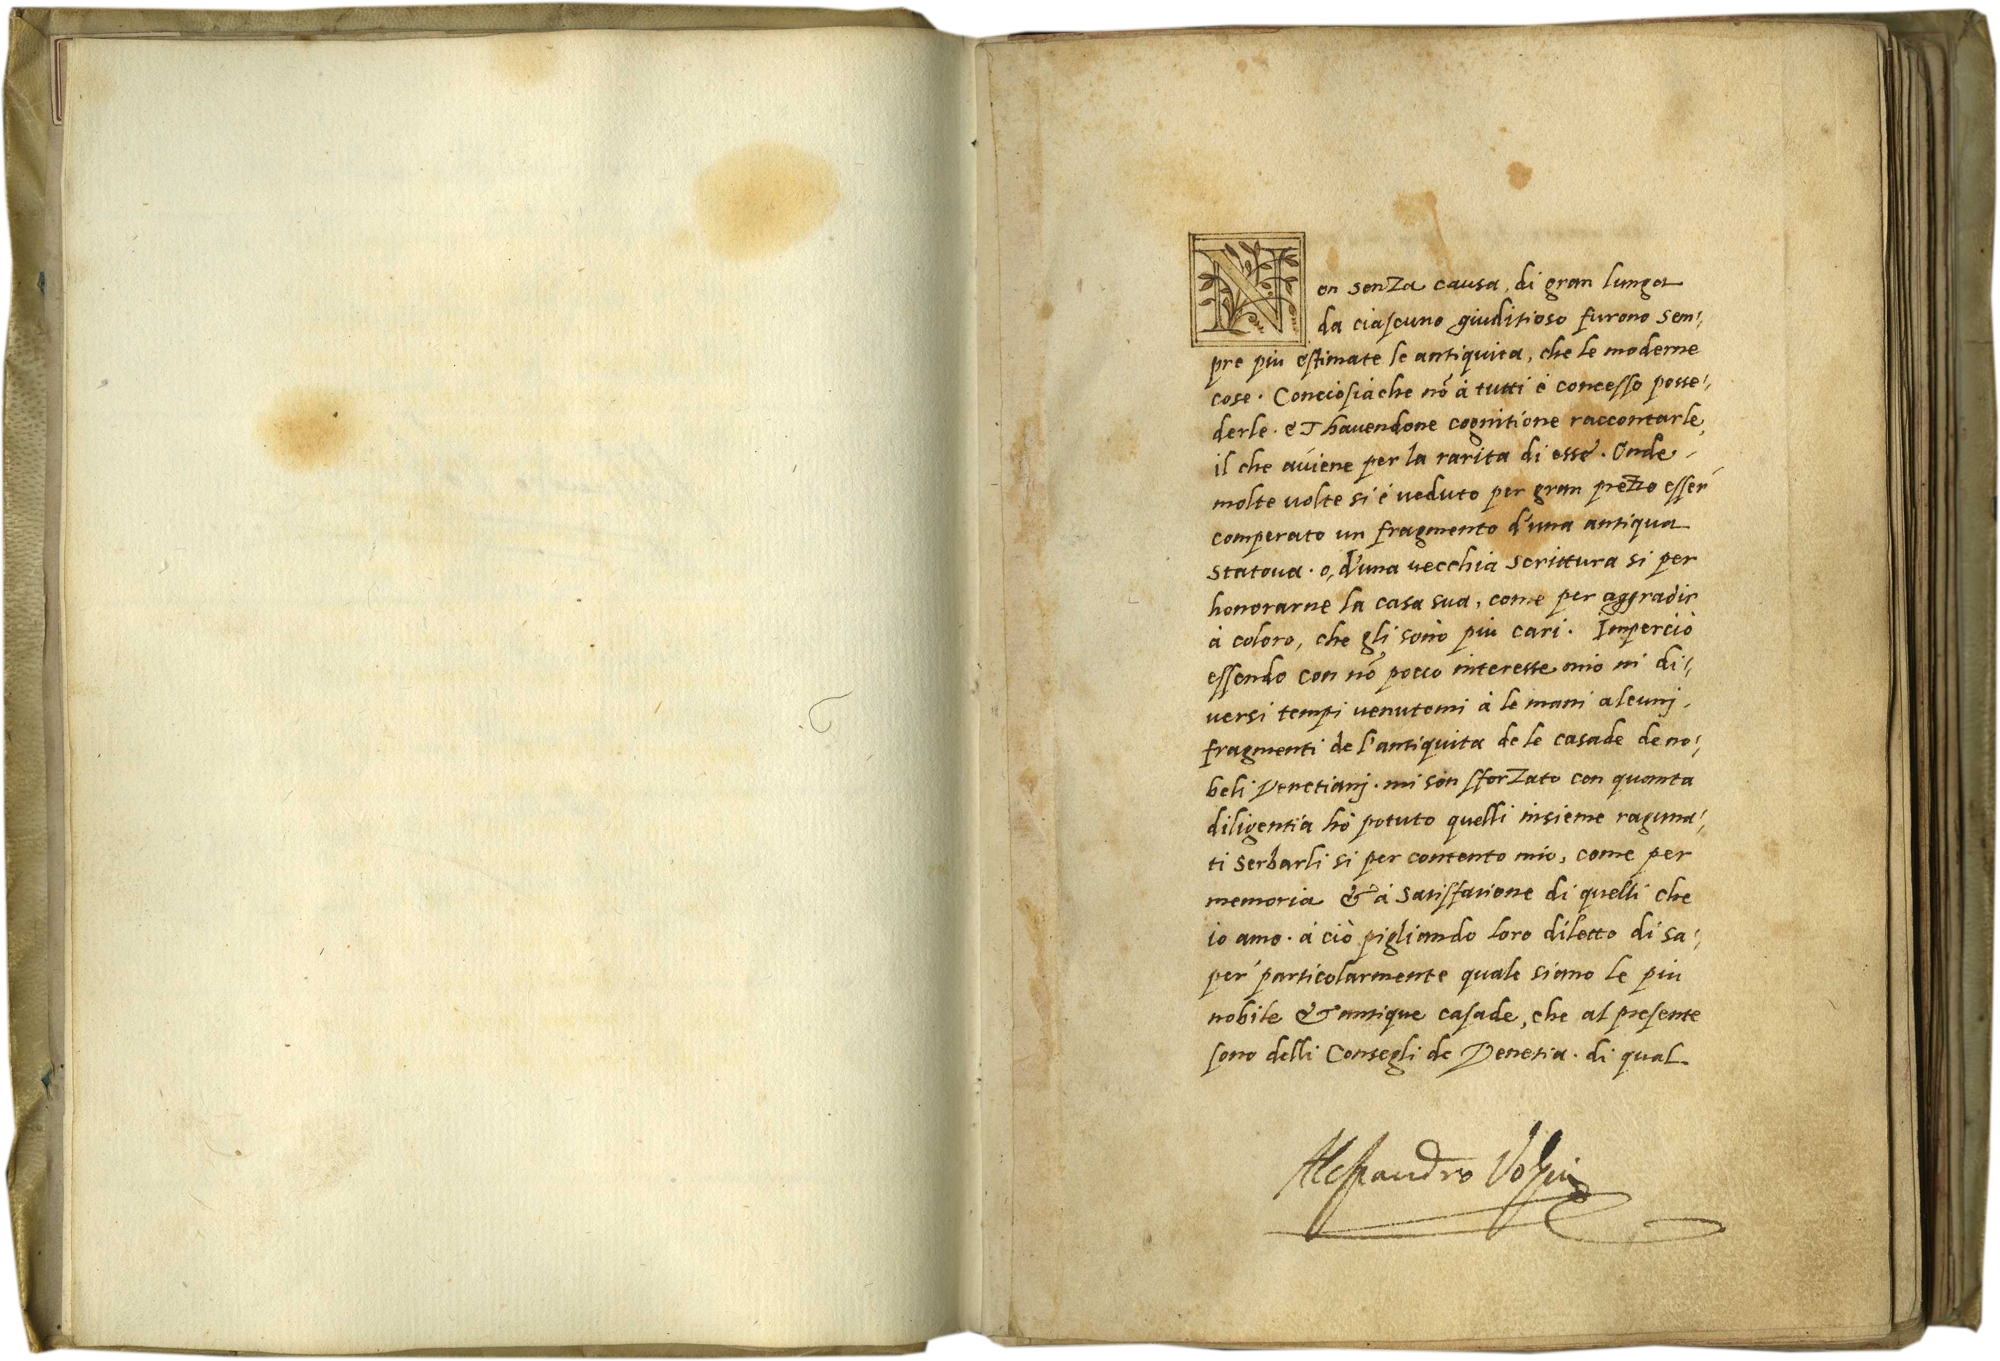 Non senza causa, di gran lunga
da ciascuno giuditioso furono sem-
pre più estimate le antiquita, che le moderne
cose. Conciosiache nõ à tutti è concesso posse-
derle. et havendone cognitione raccontarle,
il che aviene per la rarita di esse. Onde
molte volte si è veduto per gran prezzo esser
comperato un fragmento d'una antiqua
statova. o, d'una vecchia scrittura si per
honorarne la casa sua, come per aggradir
à coloro, che gli sono più cari. Imperciò
essendo con nõ pocco interesse mio ni di-
versi tempi venutomi à le mani alcunj
fragmenti de l'antiquita de le casade de no-
beli Venetianj. mi son sforzato con quanta
diligentia hò potuto quelli insieme raguna-
ti serbarli si per contento mio, come per
memoria & à satisfatione di quelli che
io amo. à ciò pigliando loro diletto di sa-
per particolarmente quale siano le più
nobile & antique casade, che al presente
sono delli Consegli de Venetia. di qual
Alessandro Volpin